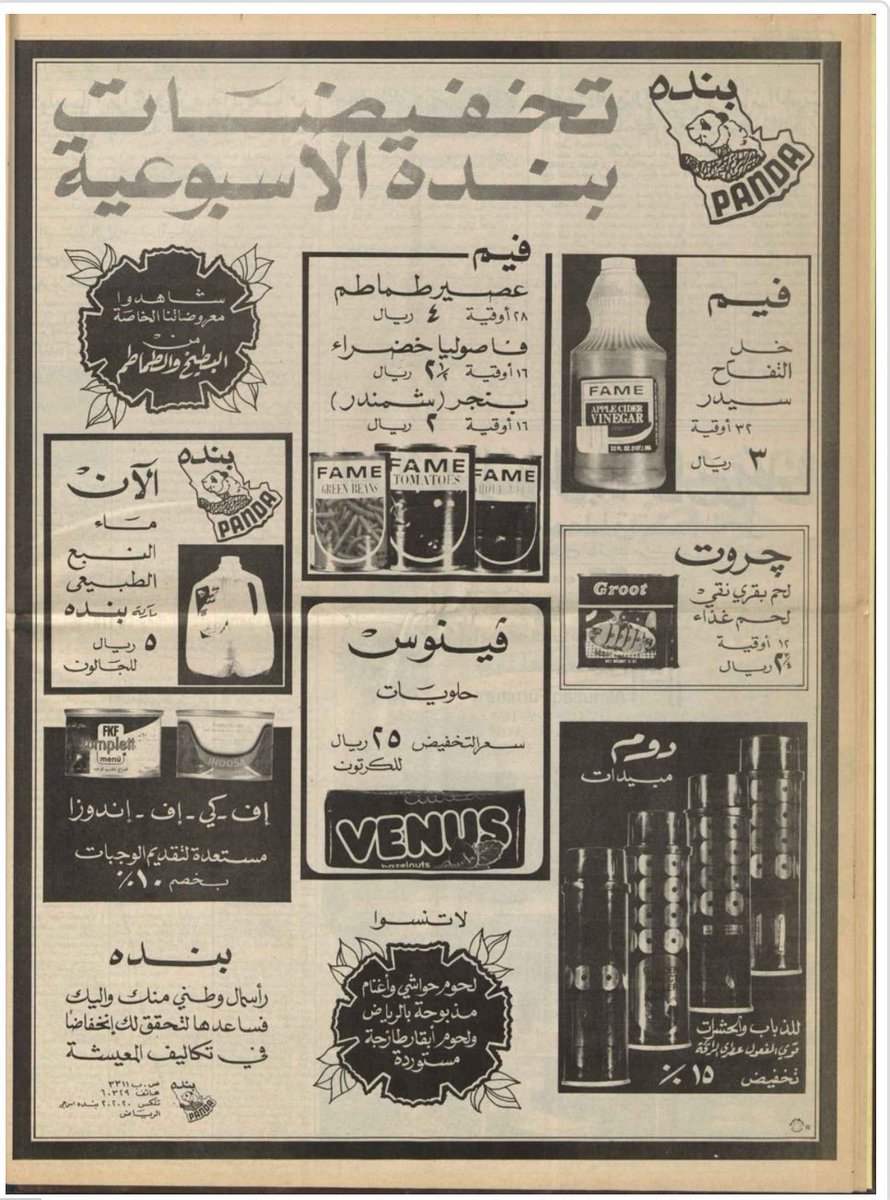 تخفيضات
بندة الاسبوعية
بنده
PANDA
فيم
خل
التفاح
سيدر
٣٢ أوقية
٣ ريال
FAME
APPLE CIDER
VINEGAR
فيم
عصير طماطم
٢٨ أوقية ٤ ريال
فاصوليا خضراء
١٦ أوقية ٢½ ريال
بنجر (شمندر)
١٦ أوقية ٢ ريال
FAME
GREEN BEANS
FAME
TOMATOES
FAME
شاهدوا
معروضاتنا الخاصة
من
البطيخ والطماطم
چروت
لحم بقري نقي
لحم غذاء
١٢ أوقية
ريال
Groot
بنده
PANDA
الآن
ماء
النبع
الطبيعى
ماركة بنده
٥ ريال
للجالون
ڤينوس
حلويات
سعر التخفيض ٢٥ ريال
للكرتون
VENUS
hazelnuts
دوم
مبيدات
للذباب والحشرات
قوي المفعول عطري الرائحة
تخفيض ١٥ ٪
FKF
Komplett
menü
INDOSA
إف - كي - إف - إندوزا
مستعدة لتقديم الوجبات
بخصم ١٠٪
لا تنسوا
لحوم حواشي وأغنام
مذبوحة بالرياض
ولحوم أبقار طازجة
مستوردة
بنده
رأسمال وطني منك واليك
فساعدها لتحقق لك إنخفاضا
في تكاليف المعيشة
ص.ب ٣٣١١
هاتف ٦٠٣٢٩
تلكس ٢٠٢٠٢٠ بنده
الرياض
بنده
PANDA